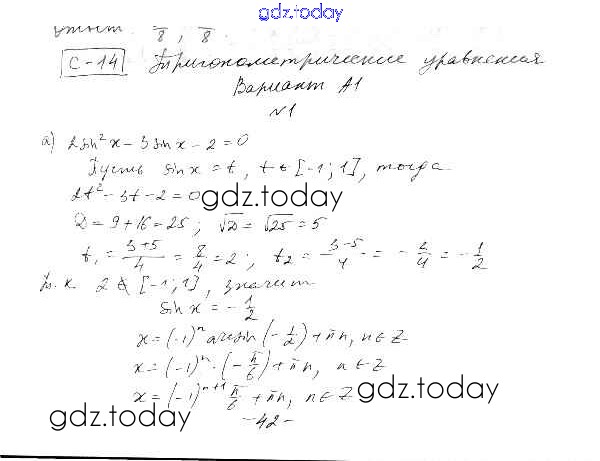 gdz.today
Ответ: π/8 ; π/8.
С-14 Тригонометрические уравнения
Вариант А1
№1
а) 2sin²x - 3sinx - 2 = 0
Пусть sinx = t, t ∈ [-1; 1], тогда
2t² - 3t - 2 = 0
gdz.today
D = 9 + 16 = 25; √D = √25 = 5
t₁ = (3+5)/4 = 8/4 = 2; t₂ = (3-5)/4 = -2/4 = -1/2
Т.к. 2 ∉ [-1; 1], значит
sinx = -1/2
x = (-1)ⁿ arcsin(-1/2) + πn, n ∈ Z
x = (-1)ⁿ · (-π/6) + πn, n ∈ Z
x = (-1)ⁿ⁺¹ π/6 + πn, n ∈ Z
gdz.today
gdz.today
-42-